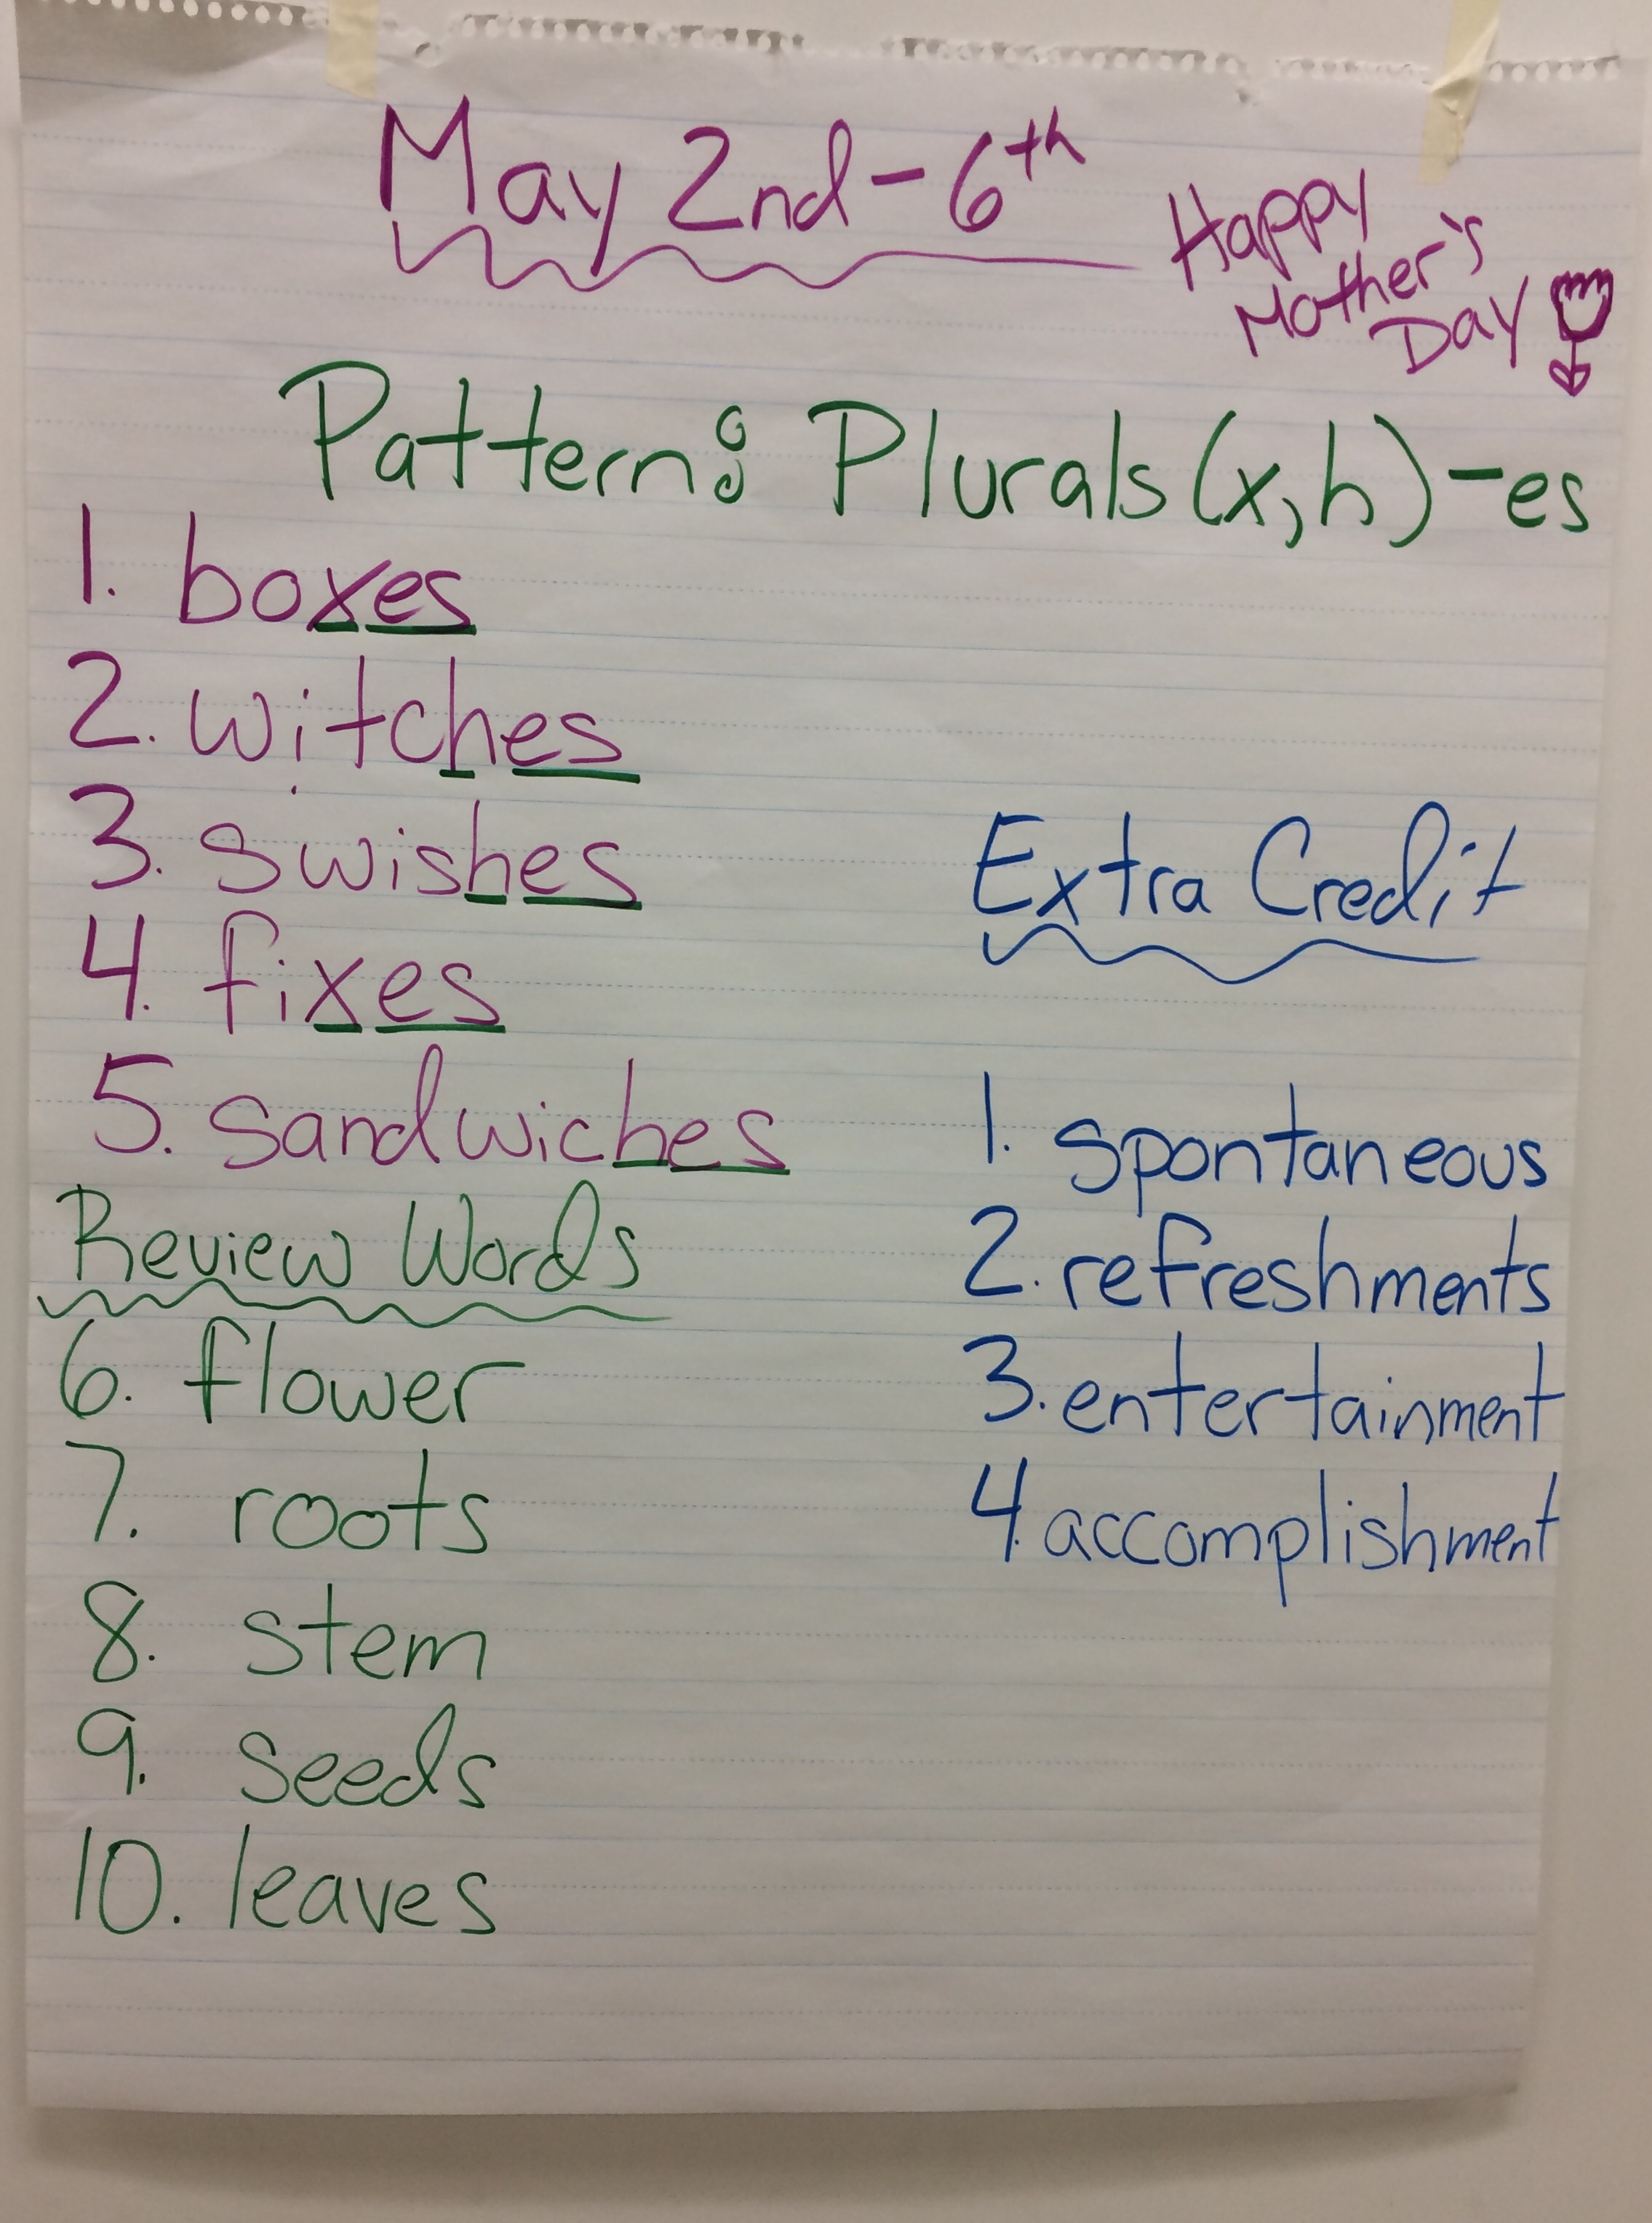 May 2nd-6th
Happy
Mother's
Day
Pattern: Plurals (x,h) -es
1. boxes
2. witches
3. swishes
4. fixes
5. sandwiches
Review Words
6. flower
7. roots
8. stem
9. seeds
10. leaves
Extra Credit
1. spontaneous
2. refreshments
3. entertainment
4. accomplishment